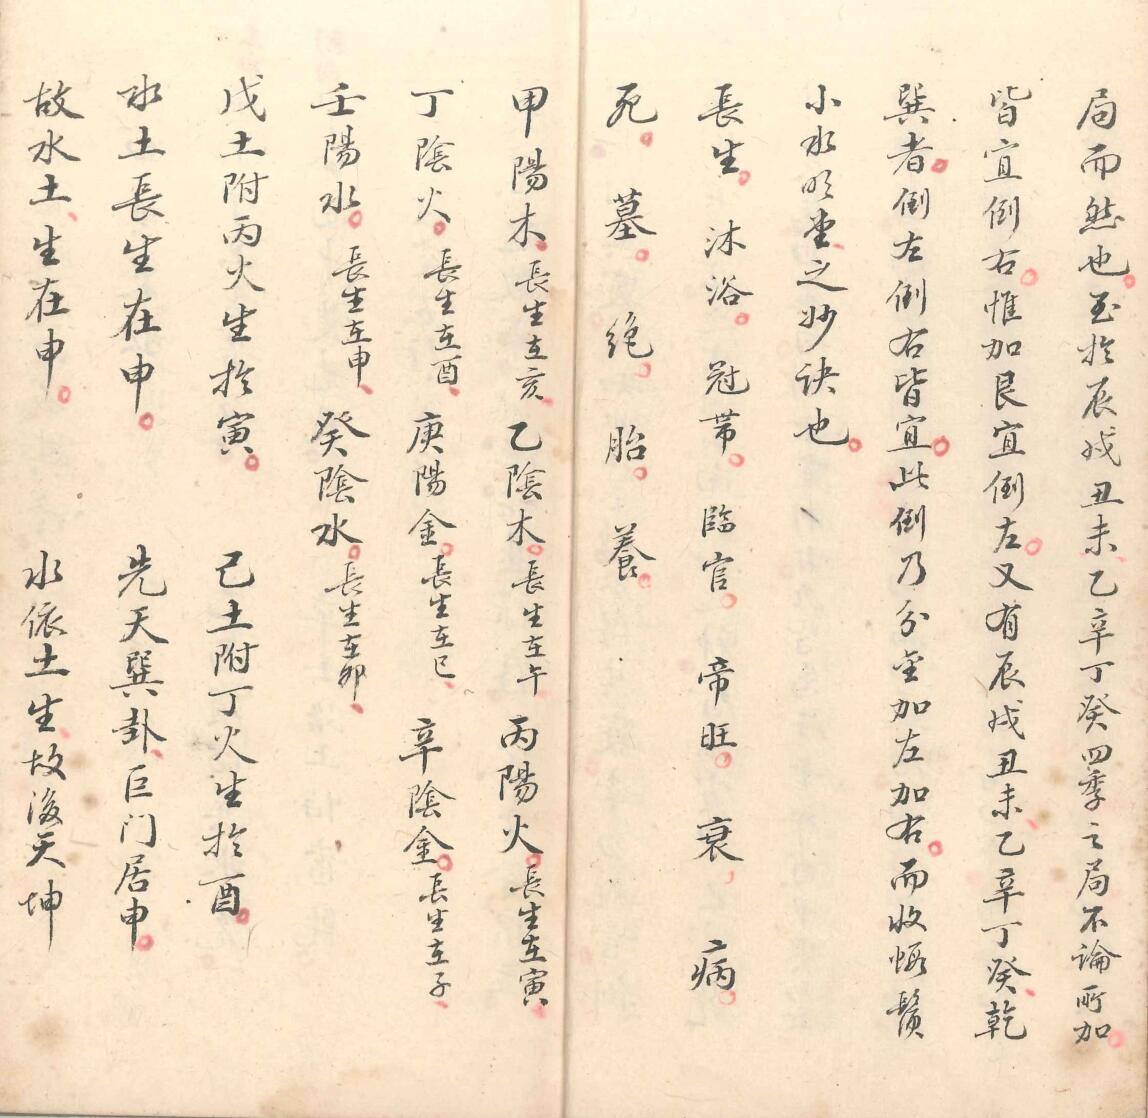 局而然也。至於辰戌丑未、乙辛丁癸四季之局不論所加。
皆宜倒右。惟加艮宜倒左。又有辰戌丑未、乙辛丁癸、乾
巽者。倒左倒右皆宜。此倒乃分金加左加右。而收蝦鬚
小水明堂之妙訣也。
長生。沐浴。冠帯。臨官。帝旺。衰、病。
死。墓。絶。胎。養。
甲陽木。長生在亥、乙陰木。長生在午、丙陽火。長生在寅、
丁陰火。長生在酉、庚陽金。長生在巳、辛陰金。長生在子、
壬陽水。長生在申、癸陰水。長生在卯、
戊土附丙火生於寅。己土附丁火生於酉。
水土長生在申。先天巽卦、巨门居申。
故水土、生在申。水依土生、故後天坤